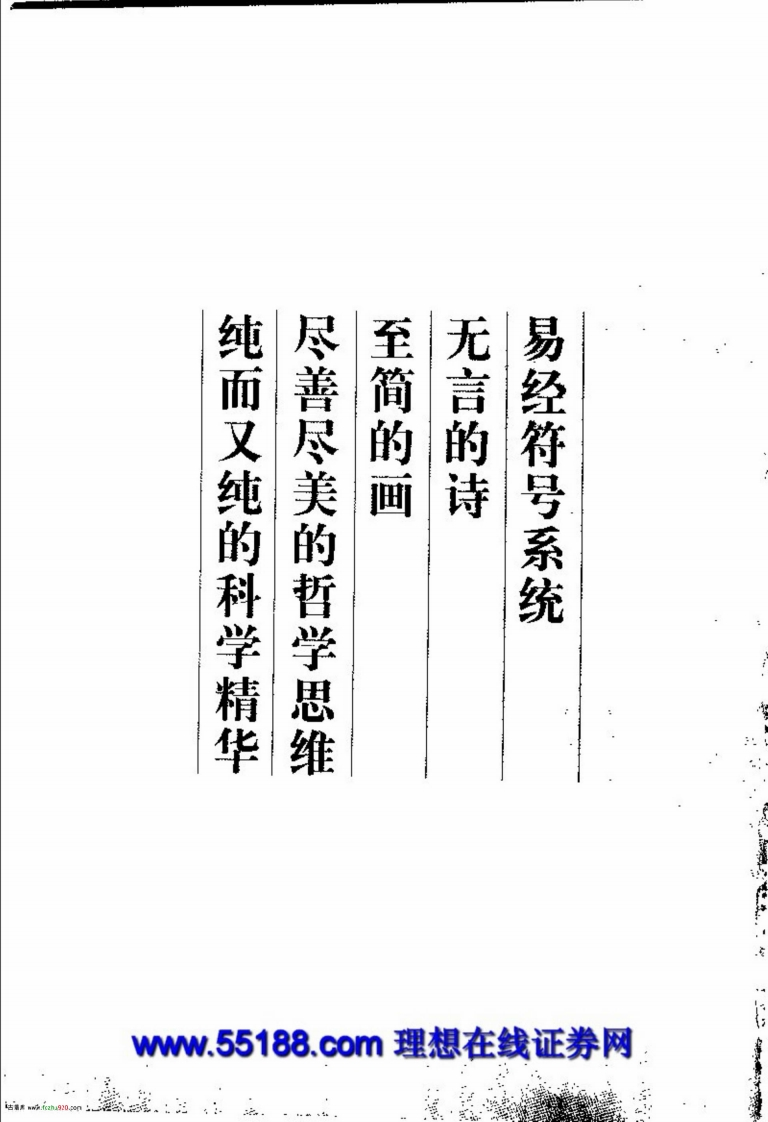 易经符号系统
无言的诗
至简的画
尽善尽美的哲学思维
纯而又纯的科学精华
www.55188.com 理想在线证券网